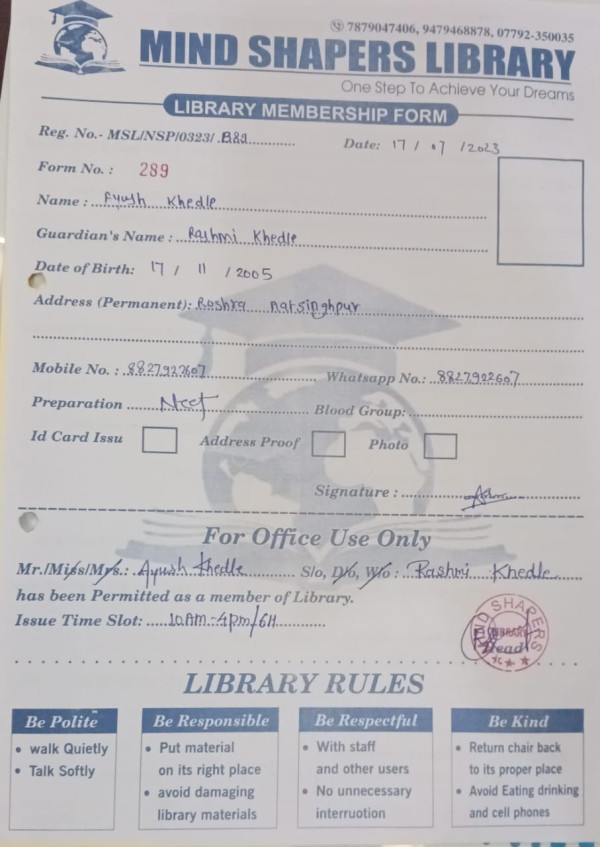 7879047406, 9479468878, 07792-350035
MIND SHAPERS LIBRARY
One Step To Achieve Your Dreams
LIBRARY MEMBERSHIP FORM
Reg. No.- MSL/NSP/0323/
Date: 17 / 07 / 2023
Form No. : 289
Name : Ayush Khedle
Guardian's Name : Rashmi Khedle
Date of Birth: 17 / 11 / 2005
Address (Permanent): narsinghpur
Mobile No. : 8827922607 Whatsapp No.: 8827922607
Preparation Neet Blood Group:
Id Card Issu Address Proof Photo
Signature :
For Office Use Only
Mr./Miss/Mrs.: Ayush Khedle S/o, D/o, W/o : Rashmi Khedle
has been Permitted as a member of Library.
Issue Time Slot: 10AM-4pm/6H
MIND SHAPERS
LIBRARY
Head
LIBRARY RULES
Be Polite
• walk Quietly
• Talk Softly
Be Responsible
• Put material
on its right place
• avoid damaging
library materials
Be Respectful
• With staff
and other users
• No unnecessary
interruotion
Be Kind
• Return chair back
to its proper place
• Avoid Eating drinking
and cell phones